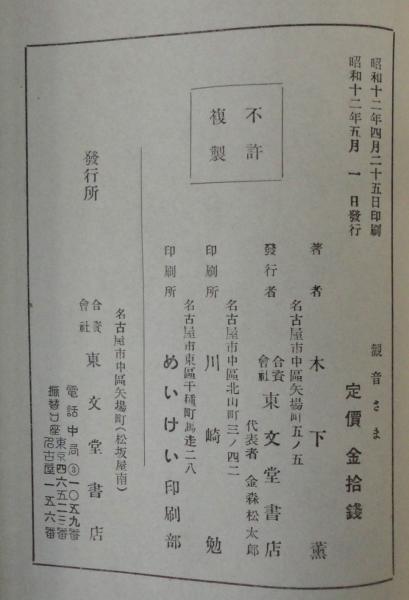 昭和十二年四月二十五日印刷
昭和十二年五月一日發行
觀音さま
定價金拾錢
不許
複製
著者 木下薫
名古屋市中區矢場町五ノ五
發行者 合資會社 東文堂書店
代表者 金森松太郎
名古屋市中區北山町三ノ四二
印刷所 川崎勉
名古屋市東區千種町馬走二八
印刷所 めいけい印刷部
發行所
名古屋市中區矢場町(松坂屋南)
合資會社 東文堂書店
電話中局③一〇五九番
振替口座 東京四六五二三番
名古屋一五六番